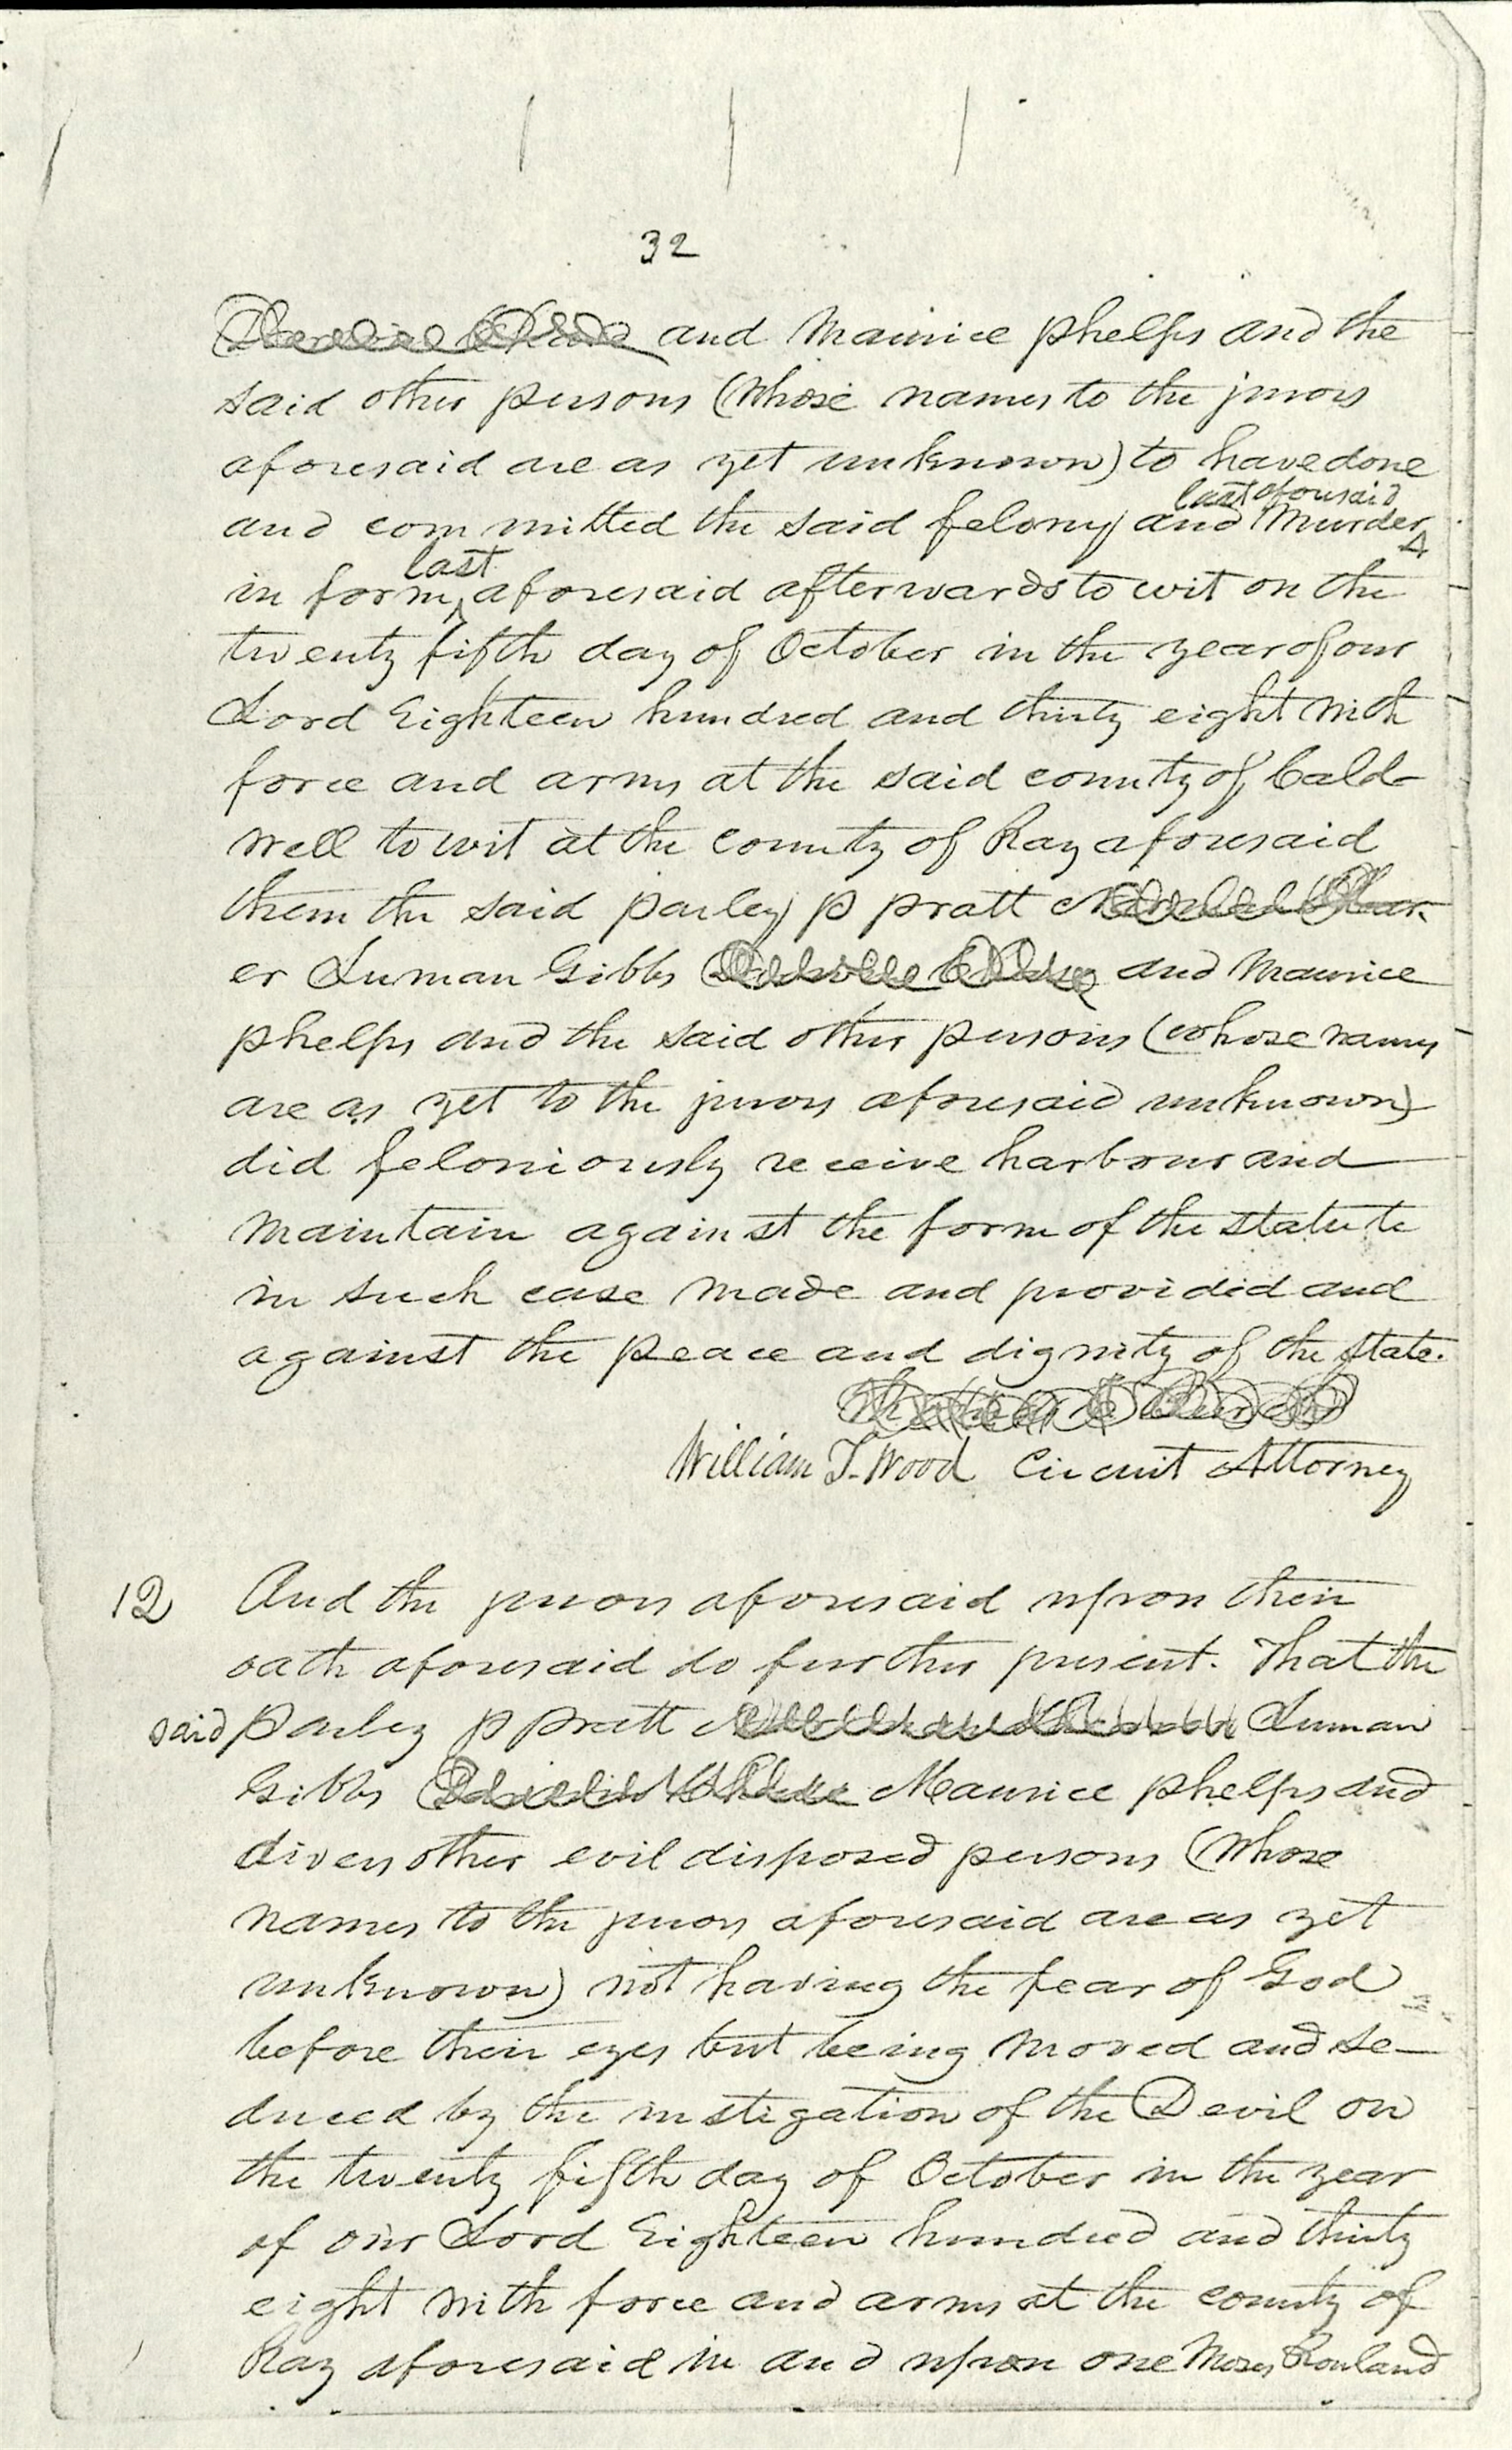 32
and Maurice phelps and the
said other persons (whose names to the jurors
aforesaid are as yet unknown) to have done
last aforesaid
and committed the said felony and Murder
last
in form aforesaid afterwards to wit on the
twenty fifth day of October in the year of our
Lord Eighteen hundred and thirty eight with
force and arms at the said county of Cald-
well to wit at the County of Ray aforesaid
them the said parley p pratt
er Luman Gibbs and Maurice
phelps and the said other persons (whose names
are as yet to the jurors aforesaid unknown)
did feloniously receive harbour and
maintain against the form of the statute
in such case made and provided and
against the peace and dignity of the State.
William T. Wood Circuit Attorney
12 And the jurors aforesaid upon their
oath aforesaid do further present. That the
said Parley p pratt Luman
Gibbs Maurice phelps and
divers other evil disposed persons (whose
names to the jurors aforesaid are as yet
unknown) not having the fear of God
before their eyes but being moved and se-
duced by the instigation of the Devil on
the twenty fifth day of October in the year
of our Lord Eighteen hundred and thirty
eight with force and arms at the county of
Ray aforesaid in and upon one Moses Rowland